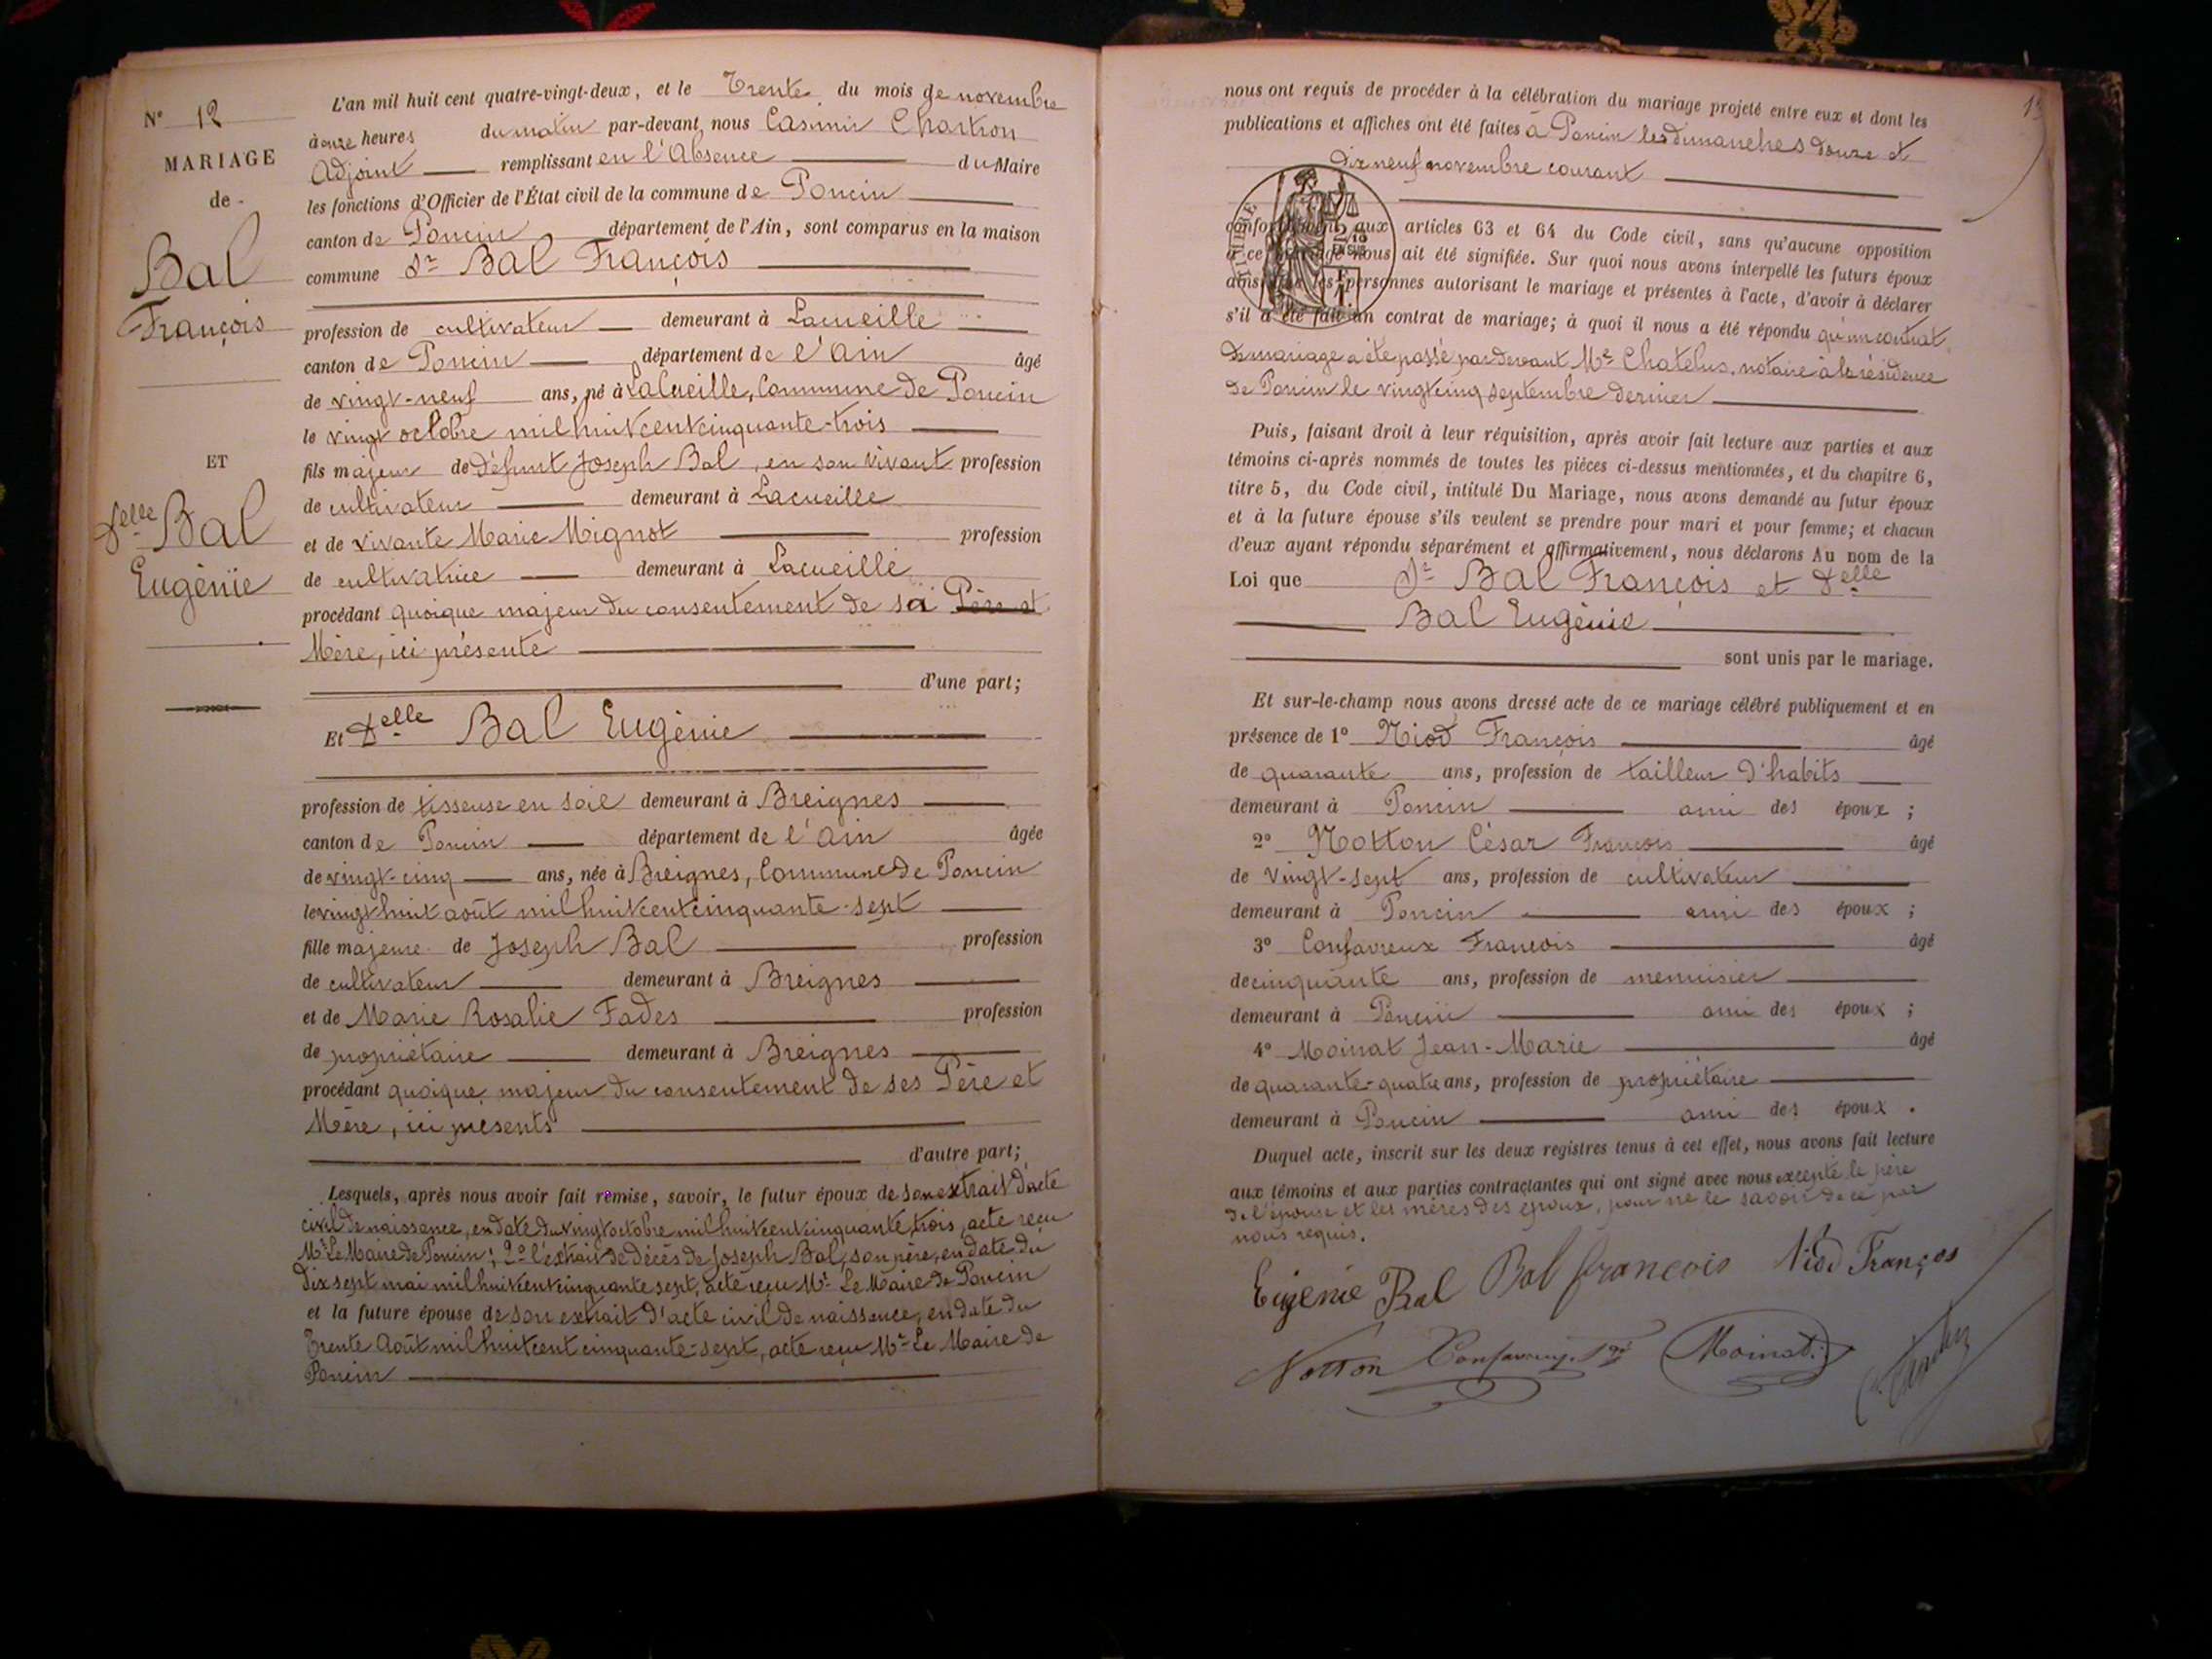 N° 12
MARIAGE
de
Bal
François
ET
Delle Bal
Eugénie
L'an mil huit cent quatre-vingt-deux, et le Trente du mois de novembre
à onze heures du matin par-devant nous Casimir Chartron
Adjoint remplissant en l'Absence du Maire
les fonctions d'Officier de l'État civil de la commune de Poncin
canton de Poncin département de l'Ain, sont comparus en la maison
commune Sr Bal François
profession de cultivateur demeurant à Lacueille
canton de Poncin département de l'Ain âgé
de vingt-neuf ans, né à LaCueille, Commune de Poncin
le vingt octobre mil huit cent cinquante-trois
fils majeur de défunt Joseph Bal, en son vivant profession
de cultivateur demeurant à Lacueille
et de vivante Marie Mignot profession
de cultivatrice demeurant à Lacueille
procédant quoique majeur du consentement de sa Père et
Mère, ici présente
d'une part;
Et Delle Bal Eugénie
profession de tisseuse en soie demeurant à Breignes
canton de Poncin département de l'Ain âgée
de vingt-cinq ans, née à Breignes, Commune de Poncin
le vingt huit août mil huit cent cinquante-sept
fille majeure de Joseph Bal profession
de cultivateur demeurant à Breignes
et de Marie Rosalie Fades profession
de propriétaire demeurant à Breignes
procédant quoique majeur du consentement de ses Père et
Mère, ici présents
d'autre part;
Lesquels, après nous avoir fait remise, savoir, le futur époux de son extrait d'acte
civil de naissance, en date du vingt octobre mil huit cent cinquante trois, acte reçu
Mr Le Maire de Poncin; 2° l'extrait de décès de Joseph Bal, son père, en date du
dix sept mai mil huit cent cinquante sept, acte reçu Mr Le Maire de Poncin
et la future épouse de son extrait d'acte civil de naissance, en date du
Trente Août mil huit cent cinquante-sept, acte reçu Mr Le Maire de
Poncin
nous ont requis de procéder à la célébration du mariage projeté entre eux et dont les
publications et affiches ont été faites à Poncin les dimanches douze et
dix neuf novembre courant
conformément aux articles 63 et 64 du Code civil, sans qu'aucune opposition
à ce mariage nous ait été signifiée. Sur quoi nous avons interpellé les futurs époux
ainsi que les personnes autorisant le mariage et présentes à l'acte, d'avoir à déclarer
s'il a été fait un contrat de mariage; à quoi il nous a été répondu qu'un contrat
de mariage a été passé par devant Me Chatelus, notaire à la résidence
de Poncin le vingt cinq septembre dernier
Puis, faisant droit à leur réquisition, après avoir fait lecture aux parties et aux
témoins ci-après nommés de toutes les pièces ci-dessus mentionnées, et du chapitre 6,
titre 5, du Code civil, intitulé Du Mariage, nous avons demandé au futur époux
et à la future épouse s'ils veulent se prendre pour mari et pour femme; et chacun
d'eux ayant répondu séparément et affirmativement, nous déclarons Au nom de la
Loi que Sr Bal François et Delle
Bal Eugénie
sont unis par le mariage.
Et sur-le-champ nous avons dressé acte de ce mariage célébré publiquement et en
présence de 1° Niod François âgé
de quarante ans, profession de tailleur d'habits
demeurant à Poncin ami des époux;
2° Notton César François âgé
de vingt-sept ans, profession de cultivateur
demeurant à Poncin ami des époux;
3° Confavreux François âgé
de cinquante ans, profession de menuisier
demeurant à Poncin ami des époux;
4° Moinat Jean-Marie âgé
de quarante-quatre ans, profession de propriétaire
demeurant à Poncin ami des époux.
Duquel acte, inscrit sur les deux registres tenus à cet effet, nous avons fait lecture
aux témoins et aux parties contractantes qui ont signé avec nous excepté le père
de l'épouse et les mères des époux, pour ne le savoir de ce par
nous requis.
Eugénie Bal Bal françois Niod François
Notton Confavreux Moinat